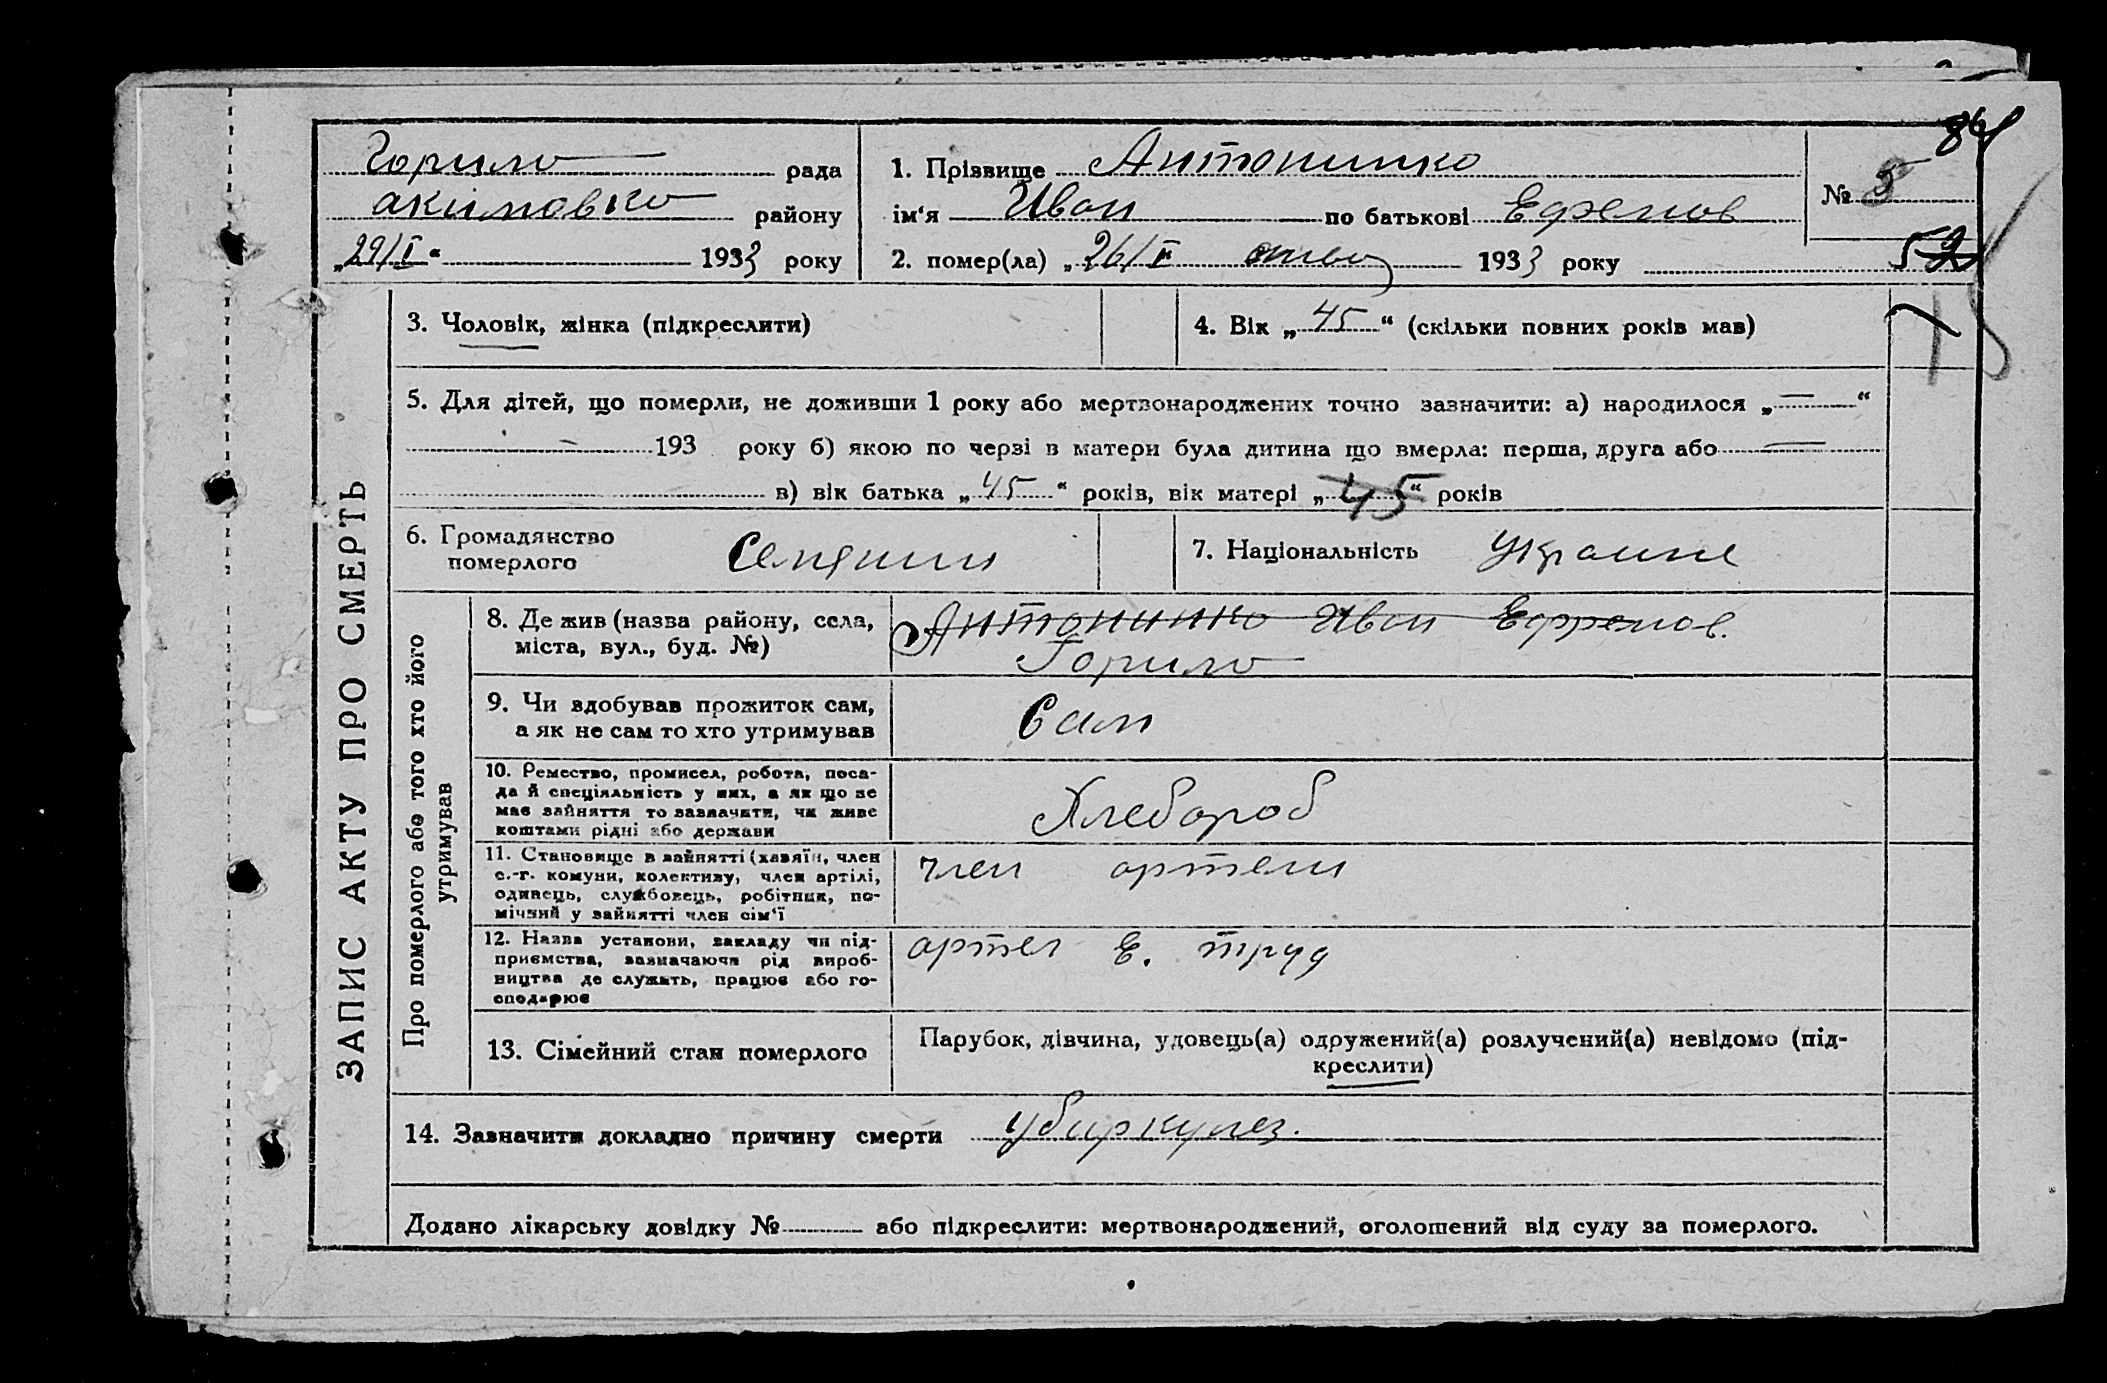 Горило рада
акимовко району
„29/I“ 1933 року
1. Прізвище Антонинко
ім‘я Иван по батькові Ефремов
2. помер(ла) „26/I 1933 року
№ 5
52
3. Чоловік, жінка (підкреслити)
4. Вік „45“ (скільки повних років мав)
5. Для дітей, що померли, не доживши 1 року або мертвонароджених точно зазначити: а) народилося „—“
— 193 року б) якою по черзі в матери була дитина що вмерла: перша, друга або —
в) вік батька „45“ років, вік матері „45“ років
6. Громадянство
померлого
7. Національність Украине
ЗАПИС АКТУ ПРО СМЕРТЬ
Про померлого або того хто його
утримував
8. Де жив (назва району, села,
міста, вул., буд. №)
Антонинко Иван Ефремов.
Горило
9. Чи здобував прожиток сам,
а як не сам то хто утримував
Сам
10. Ремество, промисел, робота, поса-
да й спеціяльність у них, а як що не
має зайняття то зазначити, чи живе
коштами рідні або держави
Хлебороб
11. Становище в зайнятті (хазяїн, член
с.-г. комуни, колективу, член артілі,
одинець, службовець, робітник, по-
мічний у зайнятті член сім‘ї
член артели
12. Назва установи, закладу чи під-
приємства, зазначаючи рід вироб-
ництва де служить, працює або го-
сподарює
артел Е. труд
13. Сімейний стан померлого
Парубок, дівчина, удовець(а) одружений(а) розлучений(а) невідомо (під-
креслити)
14. Зазначити докладно причину смерти убиркулез.
Додано лікарську довідку № або підкреслити: мертвонароджений, оголошений від суду за померлого.